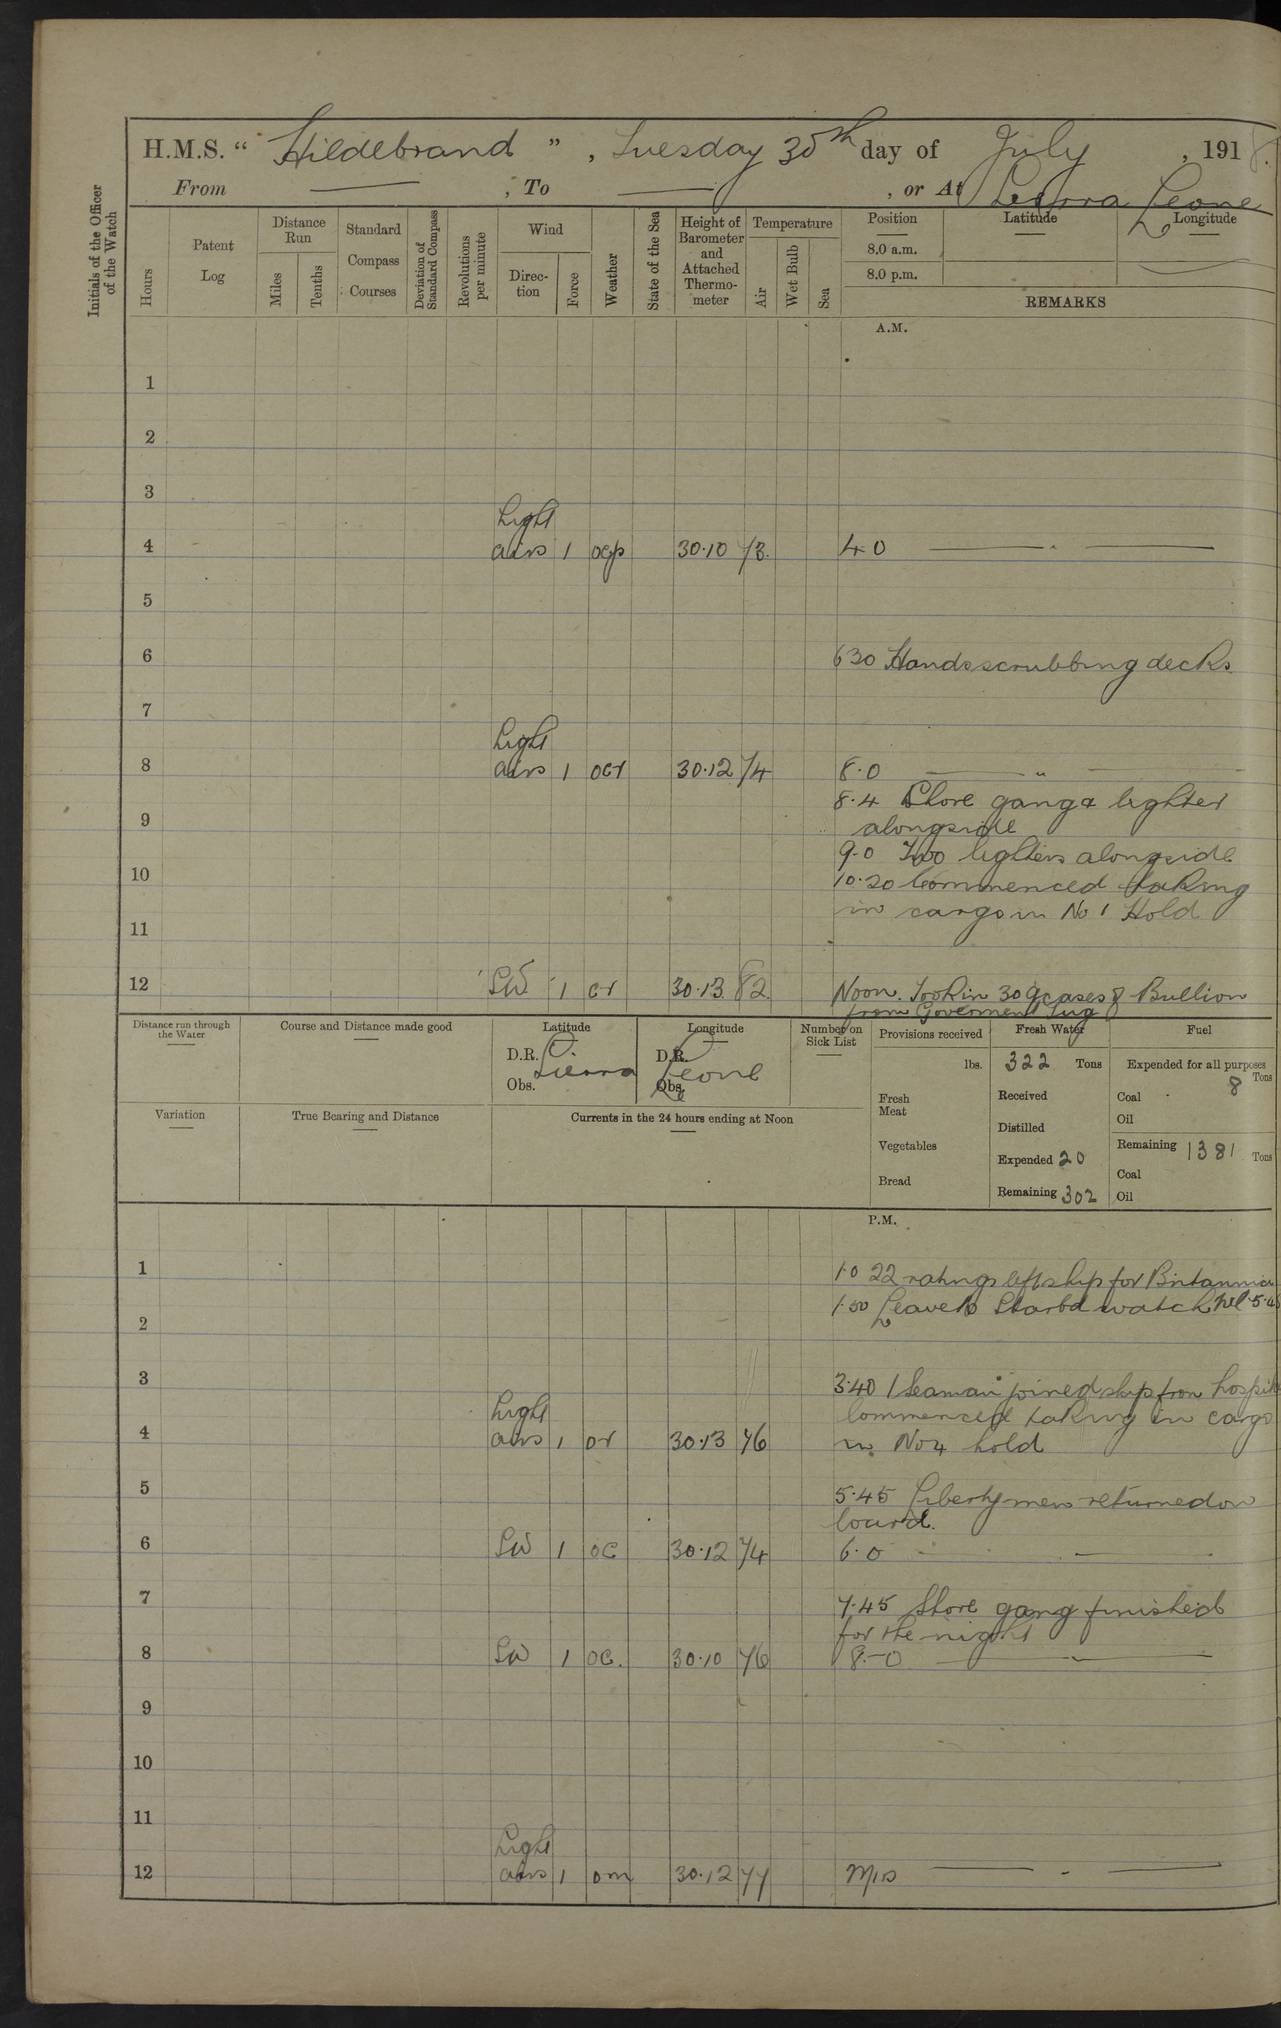 H.M.S. “ Hildebrand ” , Tuesday 30th day of July , 1918.
From — , To — , or At Sierra Leone
Initials of the Officer of the Watch
Hours
Patent Log
Distance Run
Miles
Tenths
Standard Compass Courses
Deviation of Standard Compass
Revolutions per minute
Wind
Direc-tion
Force
Weather
State of the Sea
Height of Barometer and Attached Thermo-meter
Temperature
Air
Wet Bulb
Sea
Position
Latitude
Longitude
8.0 a.m.
8.0 p.m.
REMARKS
A.M.
1
2
3
Light
4 airs 1 ocp 30.10 73 4.0 — " —
5
6 6 30 Hands scrubbing decks
7
Light
8 airs 1 ocr 30.12 74 8.0 — " —
8.4 Shore gang & lighter
9 alongside
9.0 Two lighters alongside
10 10.20 Commenced taking
in cargo in No 1 Hold
11
12 SW 1 cr 30.13 82 Noon. Took in 309 cases of Bullion
from Goverment Tug
Distance run through the Water
Course and Distance made good
Latitude
D.R. Sierra
Obs.
Longitude
D.R. Leone
Obs.
Number on Sick List
Provisions received
lbs.
Fresh Meat
Vegetables
Bread
Fresh Water
322 Tons
Received
Distilled
Expended 20
Remaining 302
Fuel
Expended for all purposes
8 Tons
Coal
Oil
Remaining 1381 Tons
Coal
Oil
Variation
True Bearing and Distance
Currents in the 24 hours ending at Noon
P.M.
1 1.0 22 ratings left ship for Britannia
1.50 Leave to Starbd watch till 5.45
2
3 3.40 1 Seaman joined ship from hospital
Light Commenced taking in cargo
4 airs 1 or 30.13 76 in No 4 hold
5 5.45 Liberty men returned on
board.
6 SW 1 oc 30.12 74 6.0 — " —
7 7.45 Shore gang finished
for the night
8 SW 1 oc. 30.10 76 8.0 — " —
9
10
11
Light
12 airs 1 om 30.12 77 Mid — " —